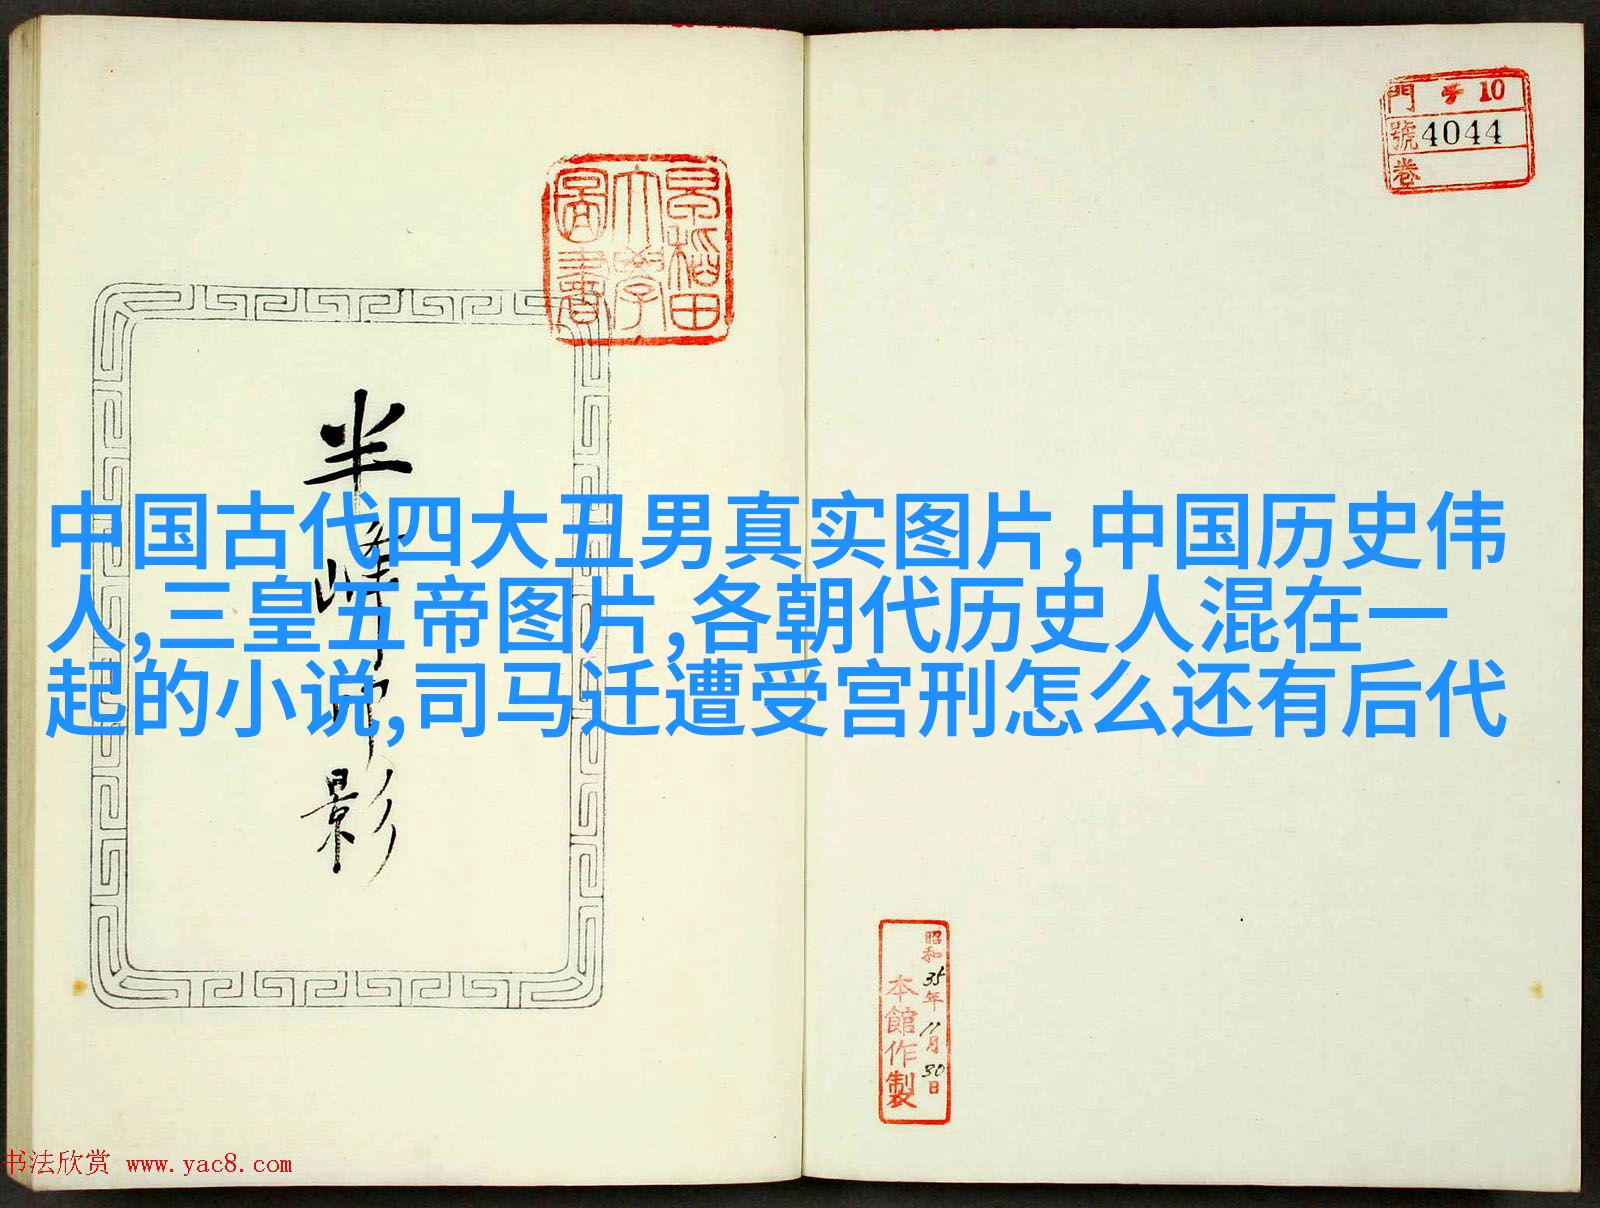 門 ヂ 10
號 4044
卷
早稲田
大學
圖書
半峰印影
中国古代四大丑男真实图片,中国历史伟
人,三皇五帝图片,各朝代历史人混在一
起的小说,司马迁遭受宫刑怎么还有后代
昭和35年11月30日
本館作製
书法欣赏 www.yac8.com